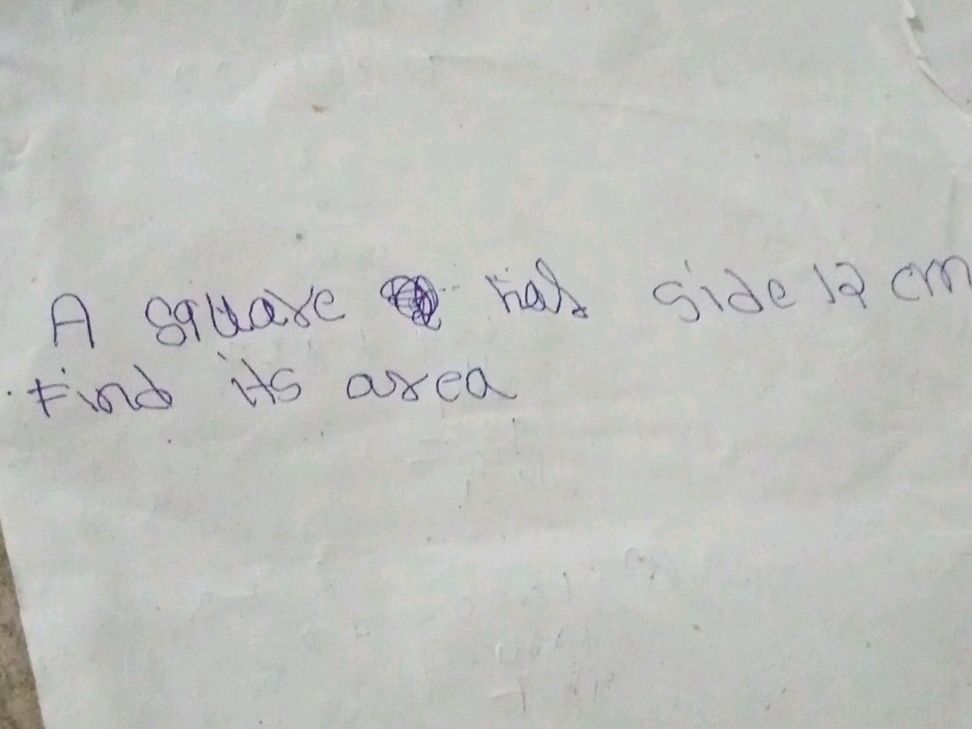 A square has side 12 cm
Find its area